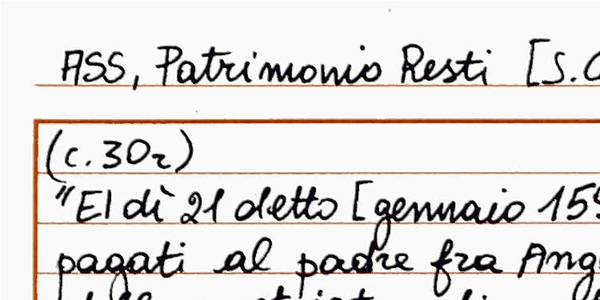 ASS, Patrimonio Resti [S.
(c.30r)
"El dì 21 detto [gennaio 155
pagati al padre fra Ang